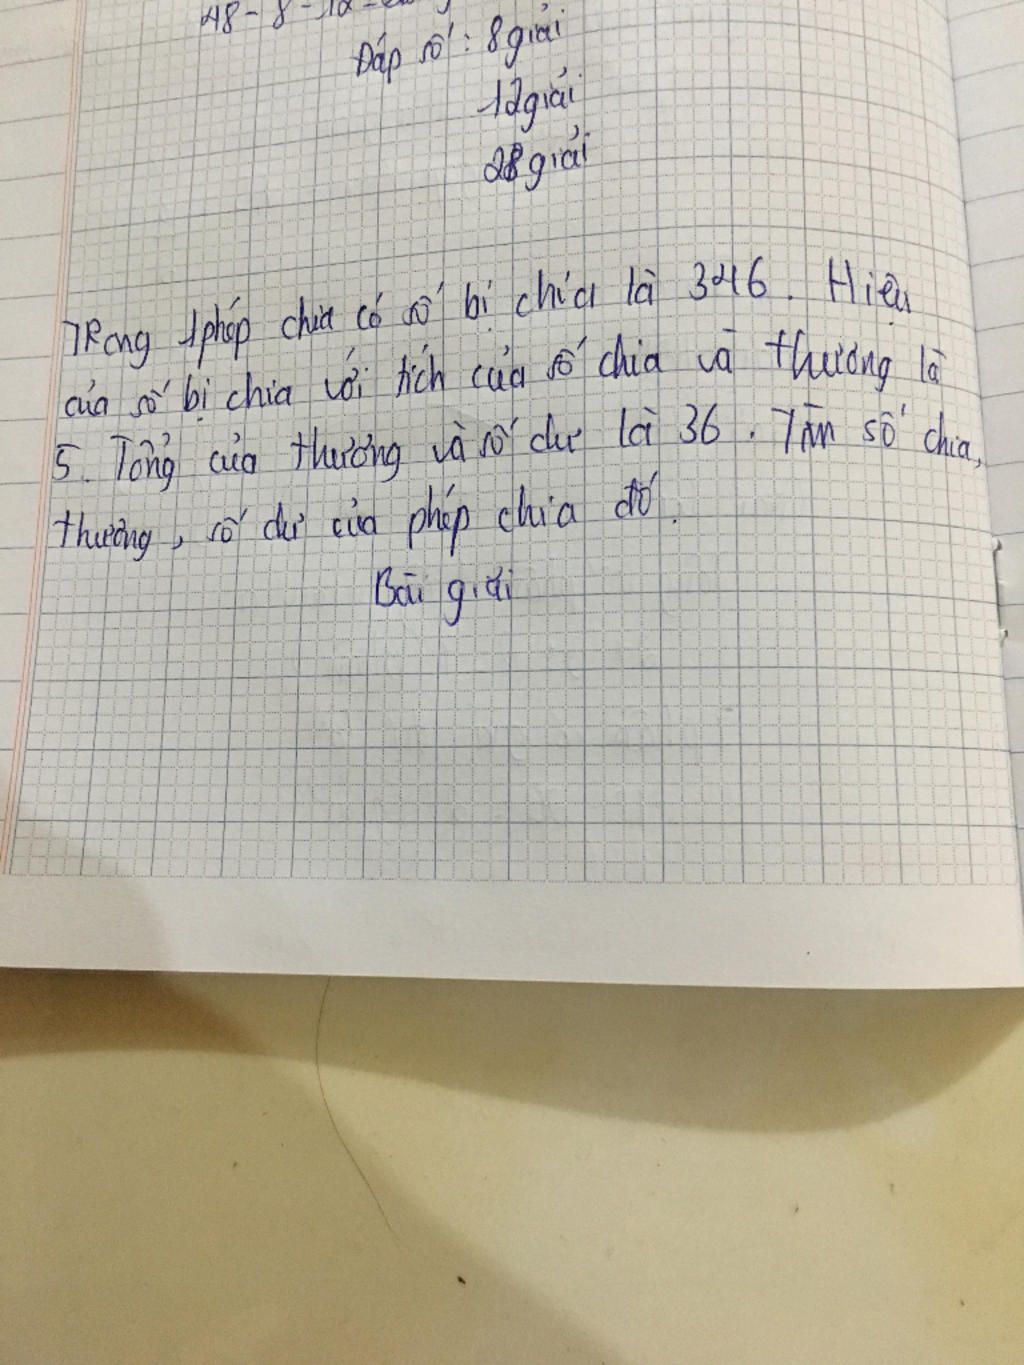 48 - 8 - 12 =
Đáp số: 8 giải
12 giải
28 giải
Trong 1 phép chia có số bị chia là 346. Hiệu
của số bị chia với tích của số chia và thương là
5. Tổng của thương và số dư là 36. Tìm số chia,
thương, số dư của phép chia đó.
Bài giải